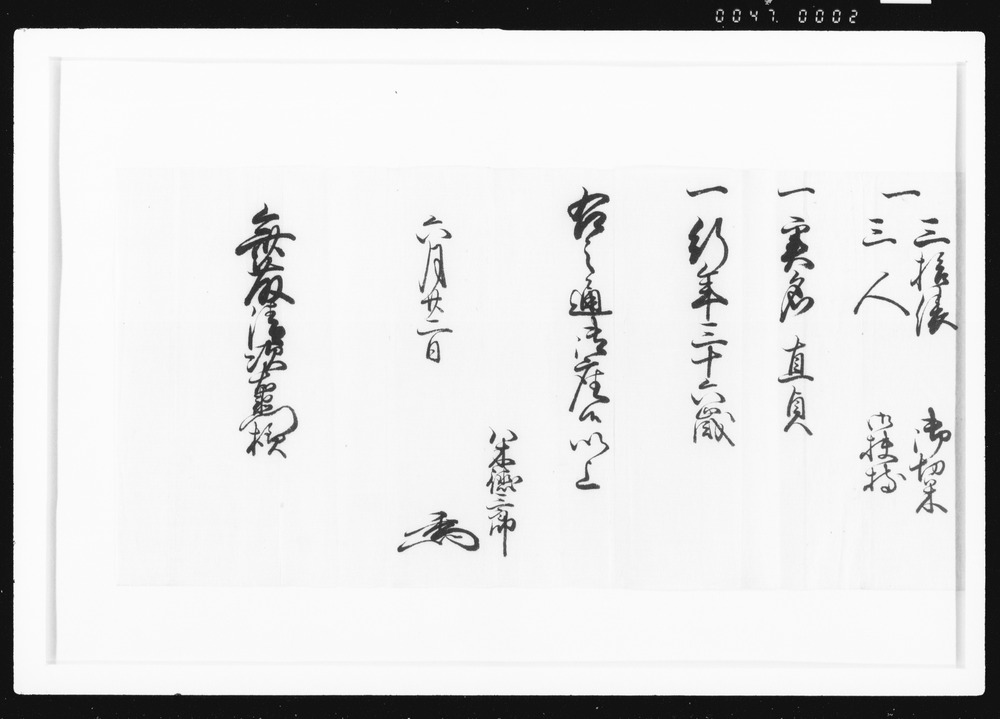 0047. 0002
一 三拾俵 御切米
三人 御扶持
一 実名 直貞
一 行年三十六歳
右之通御座候以上
六月廿二日
八木徳三郎
無藤清次右衛門様